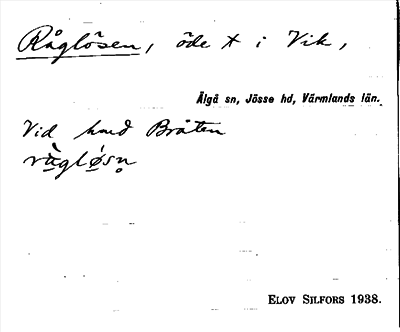 Råglösen, öde + i Vik,
Älgå sn, Jösse hd, Värmlands län.
Vid hmd Bråten
rå̀glø̀sn̥
ELOV SILFORS 1938.